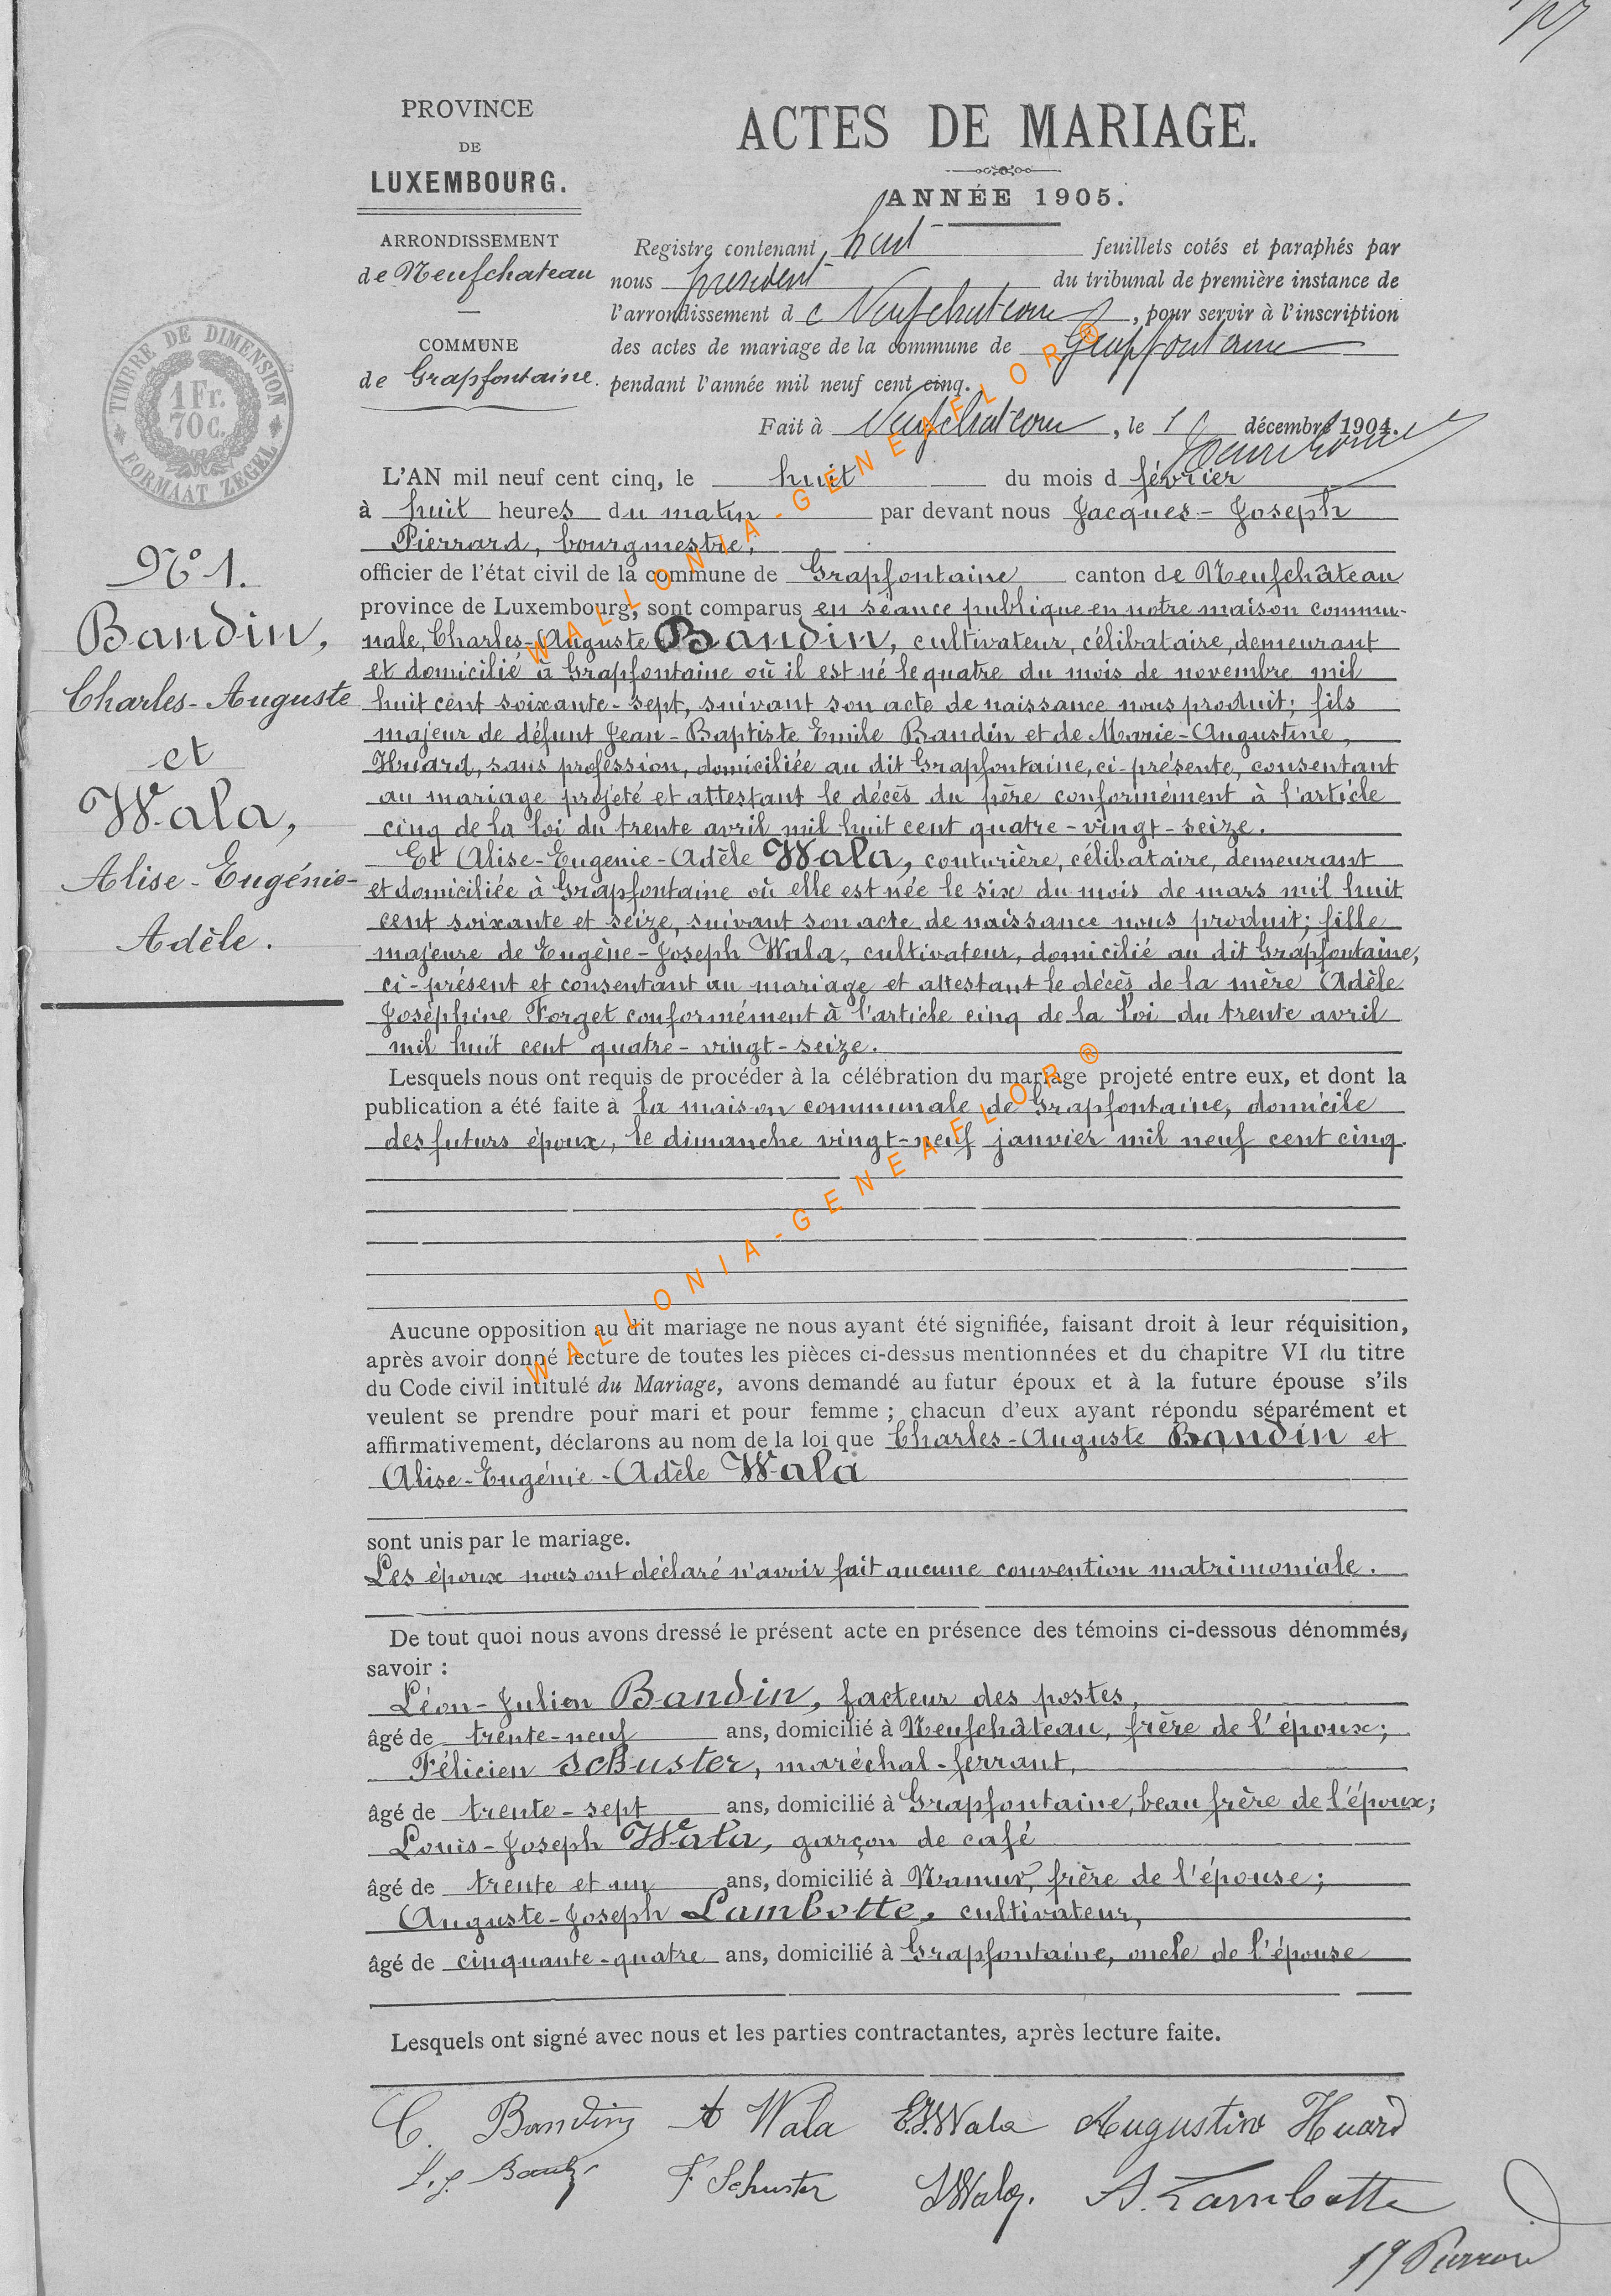 PROVINCE
DE
LUXEMBOURG.
ARRONDISSEMENT
de Neufchateau
COMMUNE
de Grapfontaine.
TIMBRE DE DIMENSION
1 Fr.
70 c.
FORMAAT ZEGEL
ACTES DE MARIAGE.
ANNÉE 1905.
Registre contenant huit feuillets cotés et paraphés par
nous président du tribunal de première instance de
l'arrondissement de Neufchateau, pour servir à l'inscription
des actes de mariage de la commune de Grapfontaine
pendant l'année mil neuf cent cinq.
Fait à Neufchateau, le décembre 1904.
L'AN mil neuf cent cinq, le huit du mois d février
à huit heures du matin par devant nous Jacques-Joseph
Pierrard, bourgmestre,
officier de l'état civil de la commune de Grapfontaine canton de Neufchâteau
province de Luxembourg, sont comparus en séance publique en notre maison commu-
nale, Charles-Auguste Baudin, cultivateur, célibataire, demeurant
et domicilié à Grapfontaine où il est né le quatre du mois de novembre mil
huit cent soixante-sept, suivant son acte de naissance nous produit; fils
majeur de défunt Jean-Baptiste Emile Baudin et de Marie-Augustine,
Huard, sans profession, domiciliée au dit Grapfontaine, ci-présente, consentant
au mariage projeté et attestant le décès du père conformément à l'article
cinq de la loi du trente avril mil huit cent quatre-vingt-seize.
Et Alise-Eugénie-Adèle Wala, couturière, célibataire, demeurant
et domiciliée à Grapfontaine où elle est née le six du mois de mars mil huit
cent soixante et seize, suivant son acte de naissance nous produit; fille
majeure de Eugène-Joseph Wala, cultivateur, domicilié au dit Grapfontaine,
ci-présent et consentant au mariage et attestant le décès de la mère Adèle
Joséphine Forget conformément à l'article cinq de la loi du trente avril
mil huit cent quatre-vingt-seize.
Lesquels nous ont requis de procéder à la célébration du mariage projeté entre eux, et dont la
publication a été faite à la maison communale de Grapfontaine, domicile
des futurs époux, le dimanche vingt-neuf janvier mil neuf cent cinq.
Aucune opposition au dit mariage ne nous ayant été signifiée, faisant droit à leur réquisition,
après avoir donné lecture de toutes les pièces ci-dessus mentionnées et du chapitre VI du titre
du Code civil intitulé du Mariage, avons demandé au futur époux et à la future épouse s'ils
veulent se prendre pour mari et pour femme ; chacun d'eux ayant répondu séparément et
affirmativement, déclarons au nom de la loi que Charles-Auguste Baudin et
Alise-Eugénie-Adèle Wala
sont unis par le mariage.
Les époux nous ont déclaré n'avoir fait aucune convention matrimoniale.
De tout quoi nous avons dressé le présent acte en présence des témoins ci-dessous dénommés,
savoir :
Léon-Julien Baudin, facteur des postes,
âgé de trente-neuf ans, domicilié à Neufchâteau, frère de l'époux;
Félicien Schuster, maréchal-ferrant,
âgé de trente-sept ans, domicilié à Grapfontaine, beau frère de l'époux;
Louis-Joseph Wala, garçon de café
âgé de trente et un ans, domicilié à Namur, frère de l'épouse;
Auguste-Joseph Lambotte, cultivateur,
âgé de cinquante-quatre ans, domicilié à Grapfontaine, oncle de l'épouse
Lesquels ont signé avec nous et les parties contractantes, après lecture faite.
C. Baudin A Wala E.J.Wala Augustine Huard
L.J. F. Schuster A. Lambotte
Pierrard
N° 1.
Baudin,
Charles-Auguste
et
Wala,
Alise-Eugénie-
Adèle.
WALLONIA-GENEAFLOR®
WALLONIA-GENEAFLOR®